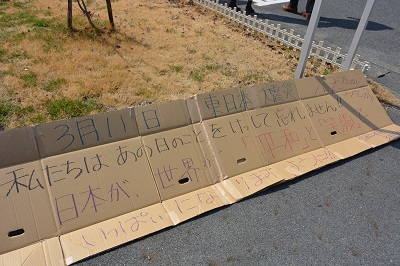 3月11日 東日本大震災
私たちはあの日のことをけして忘れません。
日本が、世界が「平和」と「笑顔」で
いっぱいになりますように